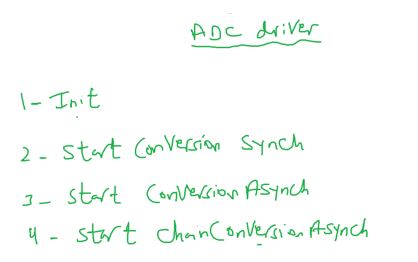 ADC driver
1- Init
2- Start Conversion Synch
3- Start Conversion Asynch
4- Start chain Conversion Asynch